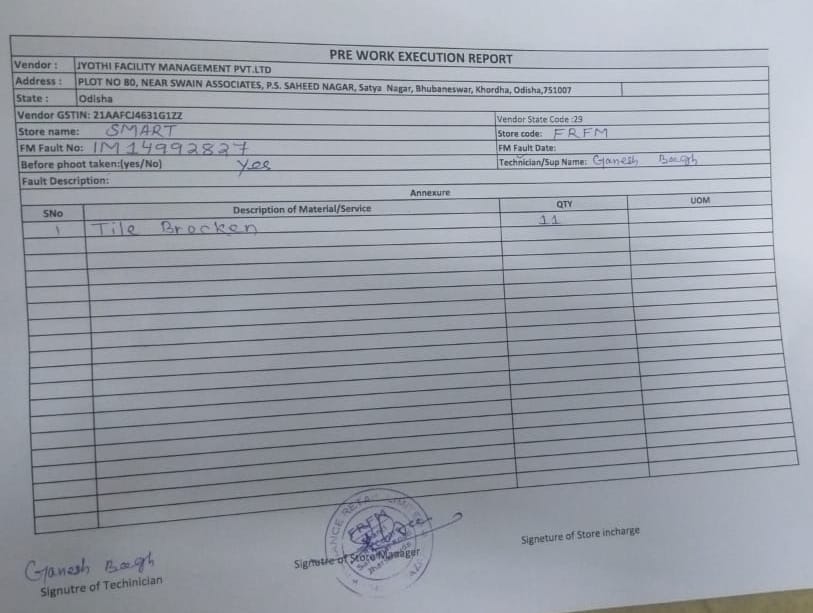 PRE WORK EXECUTION REPORT
Vendor : JYOTHI FACILITY MANAGEMENT PVT.LTD
Address : PLOT NO 80, NEAR SWAIN ASSOCIATES, P.S. SAHEED NAGAR, Satya Nagar, Bhubaneswar, Khordha, Odisha,751007
State : Odisha
Vendor GSTIN: 21AAFCJ4631G1ZZ Vendor State Code :29
Store name: SMART Store code: FRFM
FM Fault No: IM14992827 FM Fault Date:
Before phoot taken:(yes/No) Yes Technician/Sup Name: Ganesh Bagh
Fault Description:
Annexure
SNo Description of Material/Service QTY UOM
1 Tile Brocken 11
FRFM
Signutre of Store Manager
Signeture of Store incharge
Ganesh Bagh
Signutre of Techinician